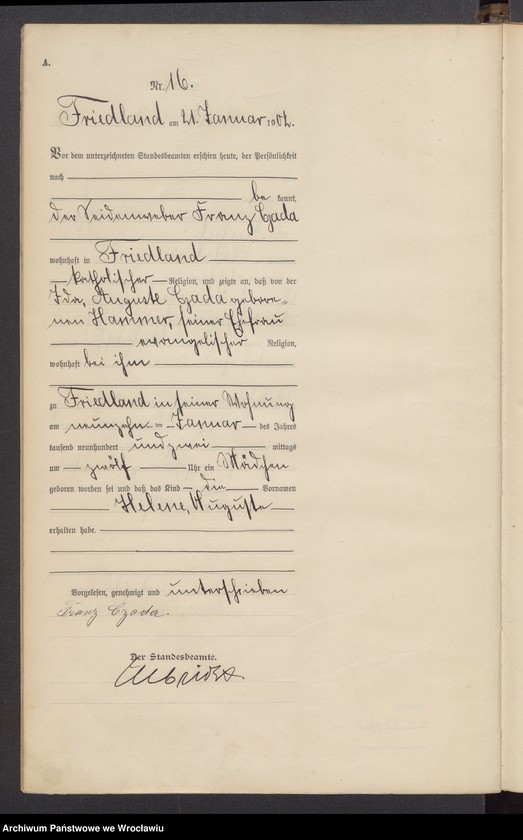 A.
Nr. 16.
Friedland am 21. Januar 1902.
Vor dem unterzeichneten Standesbeamten erschien heute, der Persönlichkeit
nach
be kannt,
der Seidenweber Franz Czada
wohnhaft in Friedland
katholischer Religion, und zeigte an, daß von der
Ida, Auguste Czada gebore-
nen Hammer, seiner Ehefrau
evangelischer Religion,
wohnhaft bei ihm
zu Friedland in seiner Wohnung
am neunzehnten Januar des Jahres
tausend neunhundert und zwei mittags
um zwölf Uhr ein Mädchen
geboren worden sei und daß das Kind die Vornamen
Helene, Auguste
erhalten habe.
Vorgelesen, genehmigt und unterschrieben
Franz Czada.
Der Standesbeamte.
Archiwum Państwowe we Wrocławiu